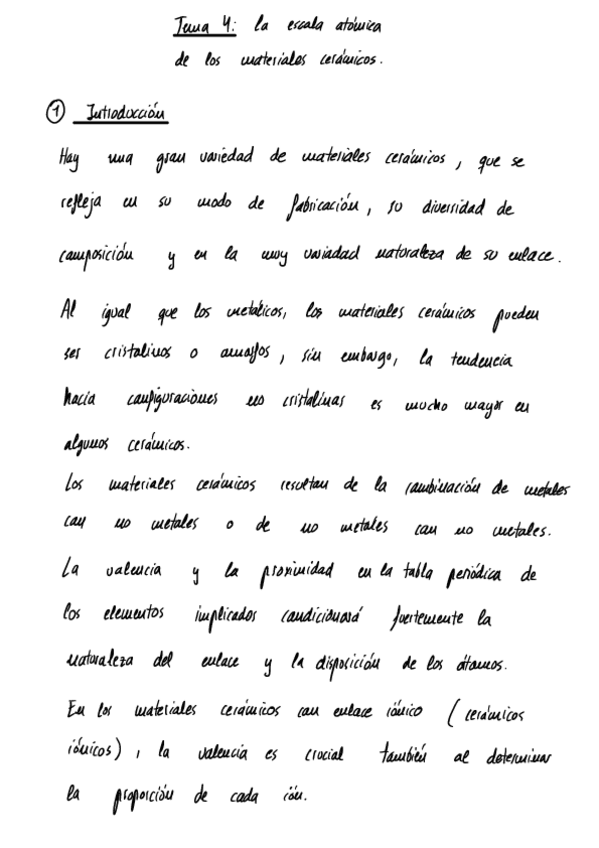 Tema 4: la escala atómica
de los materiales cerámicos.
① Introducción
Hay una gran variedad de materiales cerámicos, que se
refleja en su modo de fabricación, su diversidad de
composición y en la muy variadad naturaleza de su enlace.
Al igual que los metálicos, los materiales cerámicos pueden
ser cristalinos o amorfos, sin embargo, la tendencia
hacia configuraciones no cristalinas es mucho mayor en
algunos cerámicos.
Los materiales cerámicos resultan de la combinación de metales
con no metales o de no metales con no metales.
La valencia y la proximidad en la tabla periódica de
los elementos implicados condicionará fuertemente la
naturaleza del enlace y la disposición de los átomos.
En los materiales cerámicos con enlace iónico (cerámicos
iónicos), la valencia es crucial también al determinar
la proporción de cada ión.